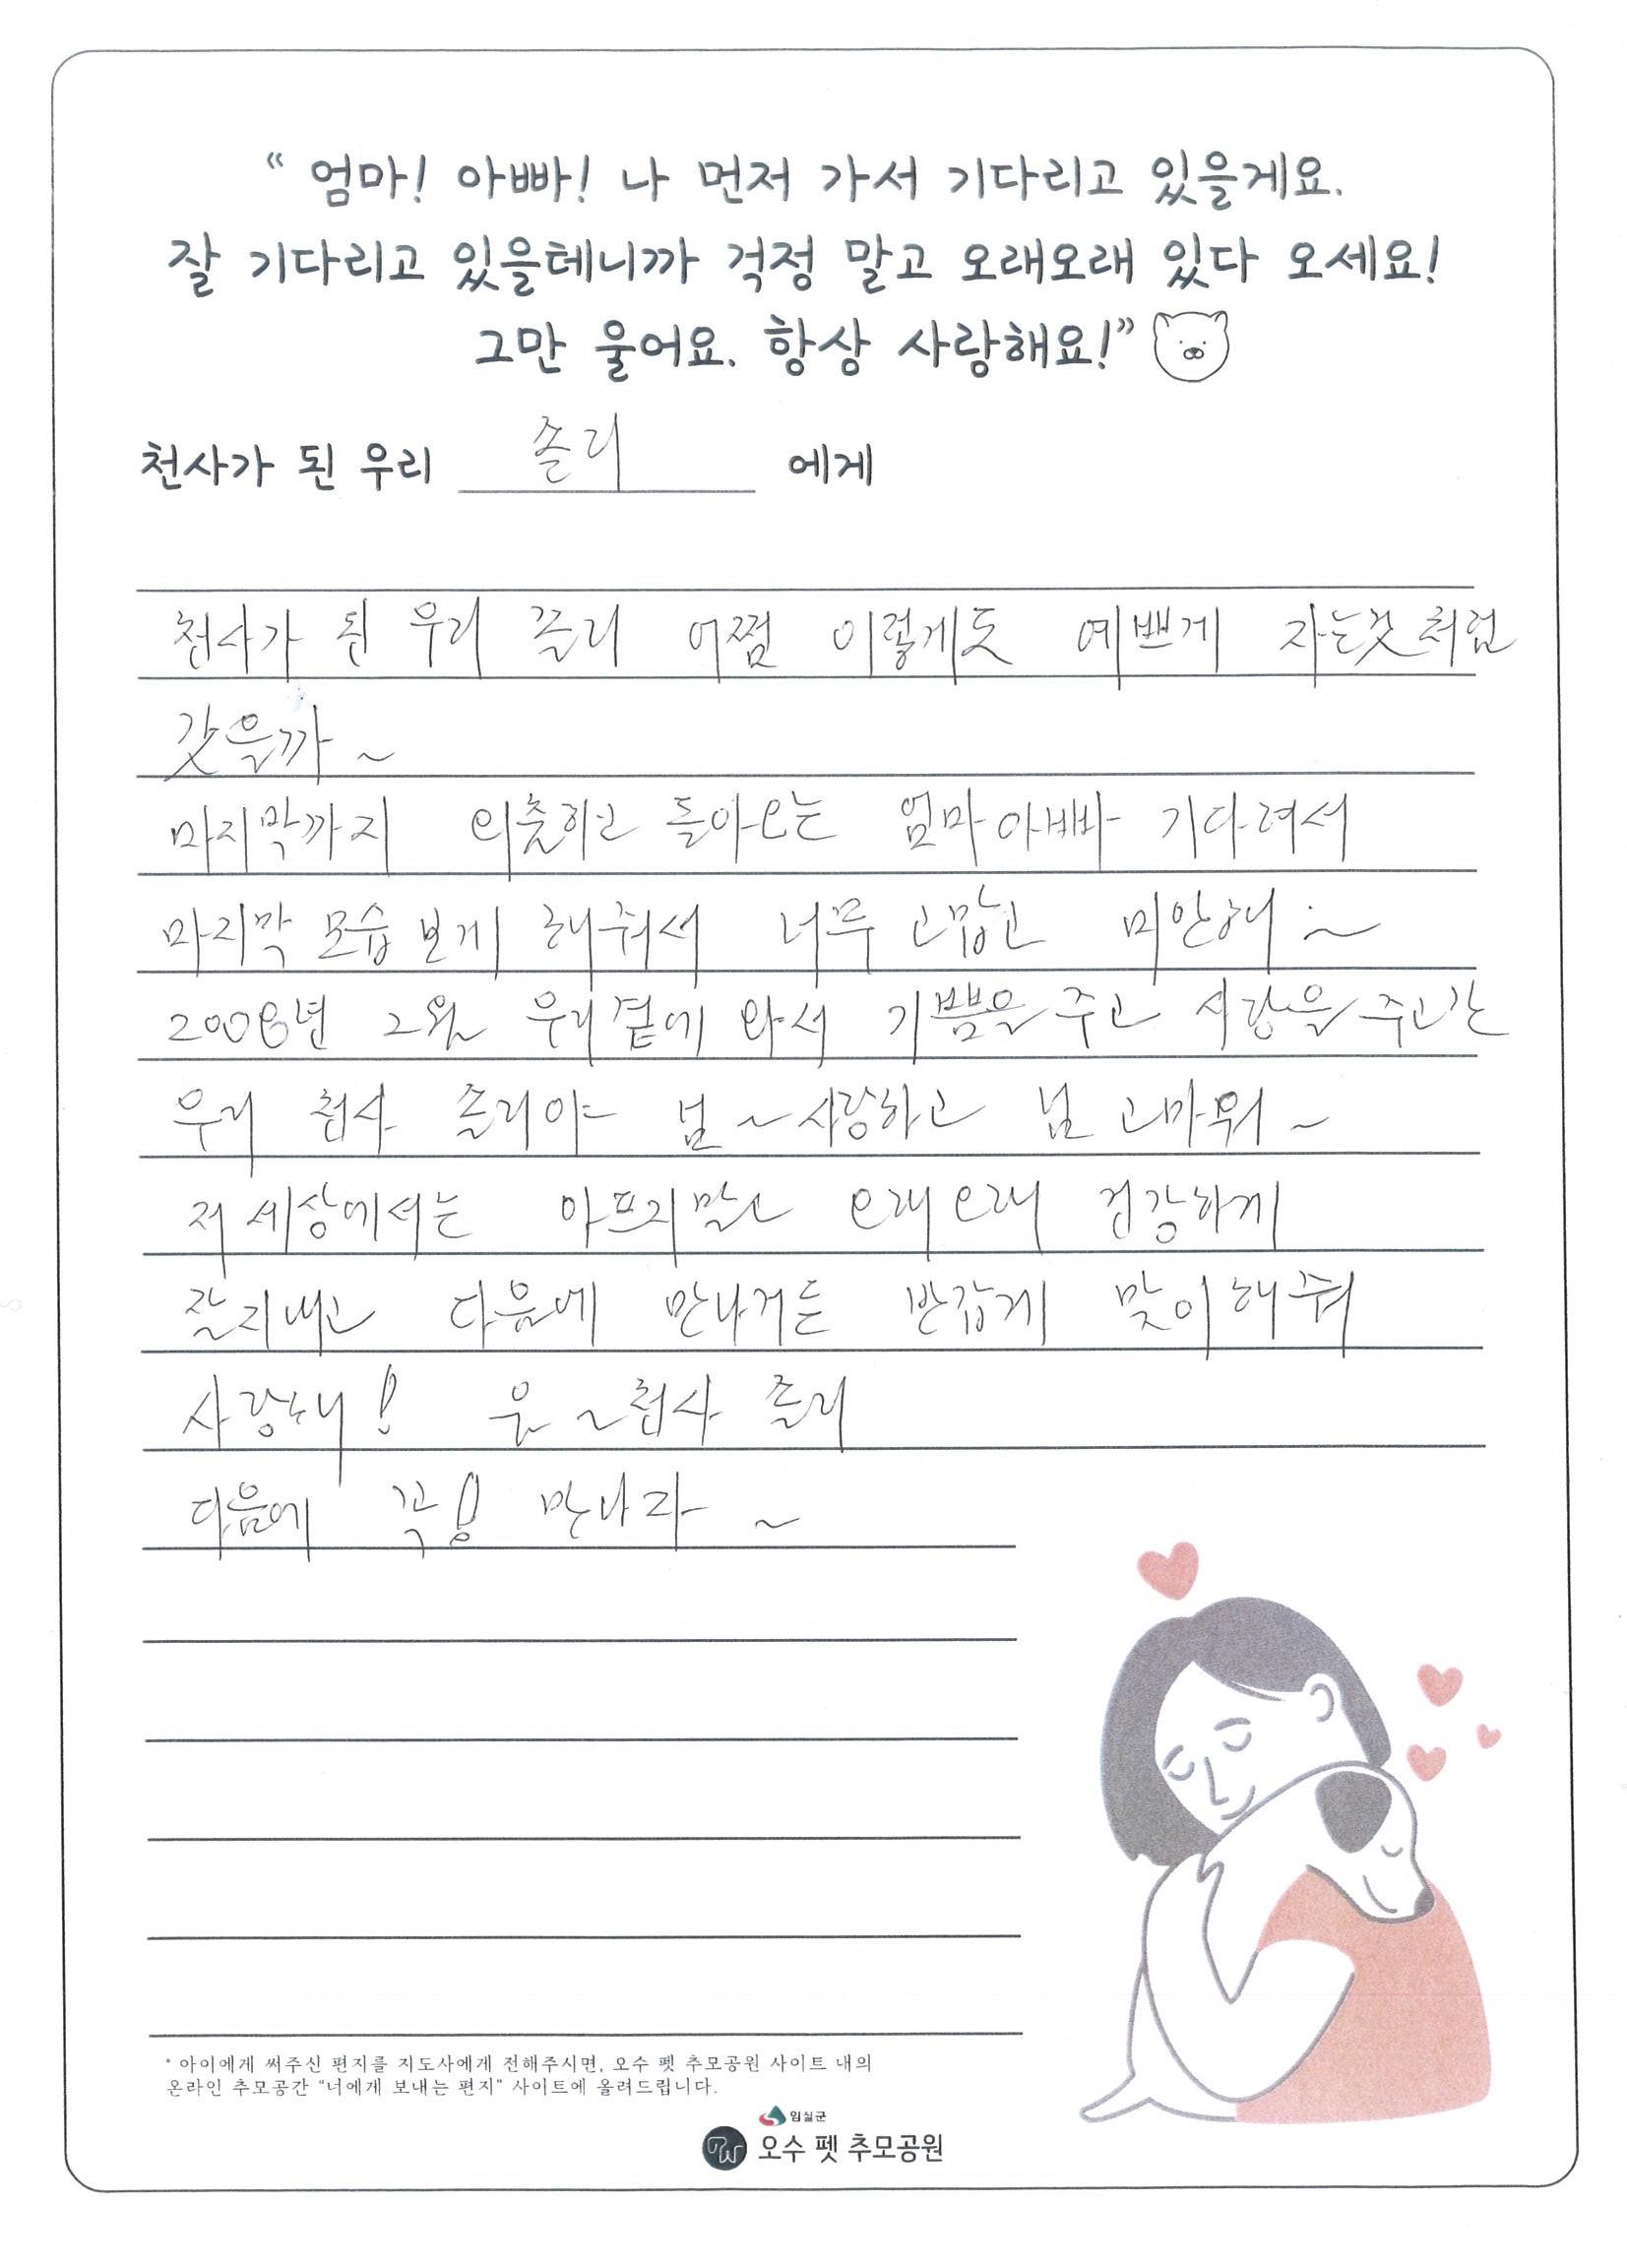 “ 엄마! 아빠! 나 먼저 가서 기다리고 있을게요.
잘 기다리고 있을테니까 걱정 말고 오래오래 있다 오세요!
그만 울어요. 항상 사랑해요!”
천사가 된 우리 쫄리 에게
천사가 된 우리 쫄리 어쩜 이렇게도 예쁘게 자는것처럼
갔을까~
마지막까지 외출하고 돌아오는 엄마아빠 기다려서
마지막 모습 보게 해줘서 너무 고맙고 미안해~
2008년 2월 우리곁에 와서 기쁨을 주고 사랑을 주고간
우리 천사 쫄리야 넘~사랑하고 넘 고마워~
저 세상에서는 아프지말고 오래오래 건강하게
잘지내고 다음에 만나거든 반갑게 맞이해줘
사랑해! 우~천사 쫄리
다음에 꼭! 만나자~
* 아이에게 써주신 편지를 지도사에게 전해주시면, 오수 펫 추모공원 사이트 내의
온라인 추모공간 “너에게 보내는 편지” 사이트에 올려드립니다.
임실군
오수 펫 추모공원